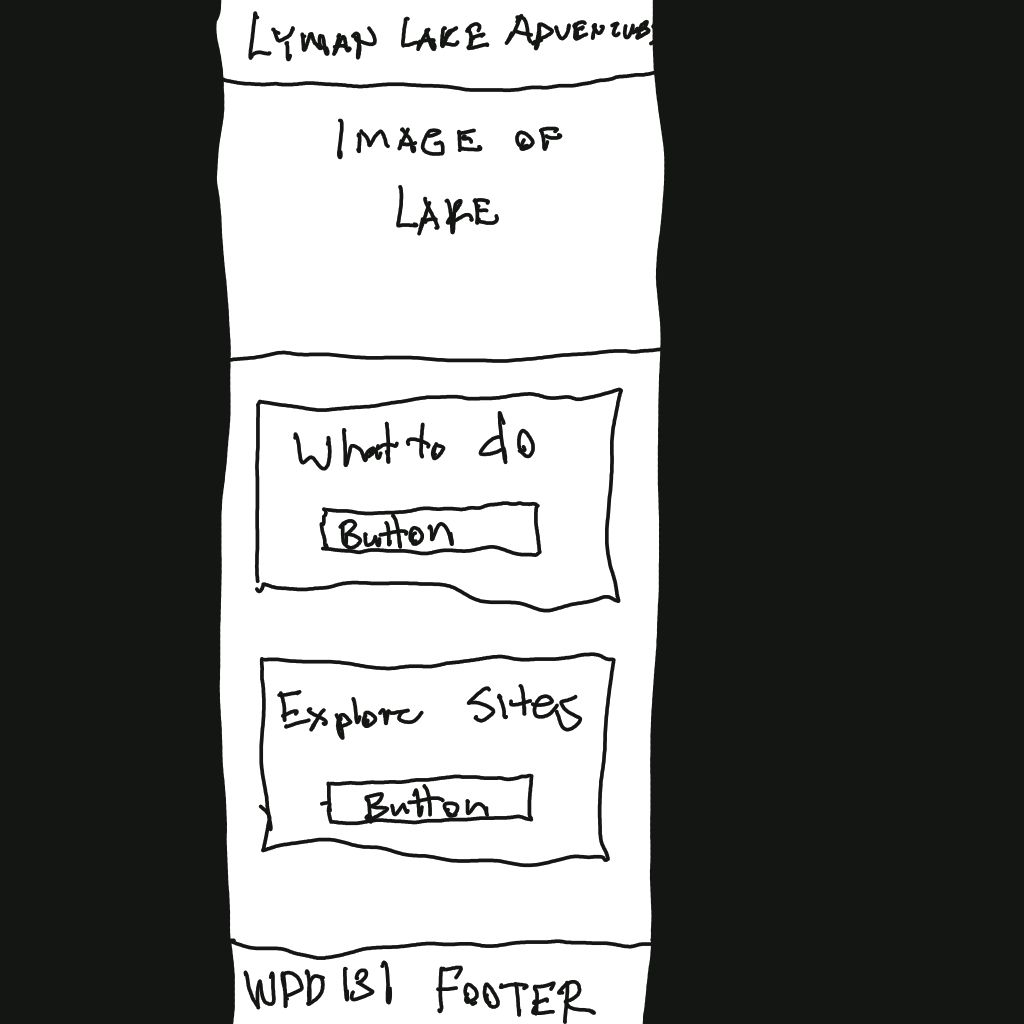 LYMAN LAKE ADVENTURE
IMAGE OF
LAKE
What to do
Button
Explore Sites
Button
WDD 131 FOOTER